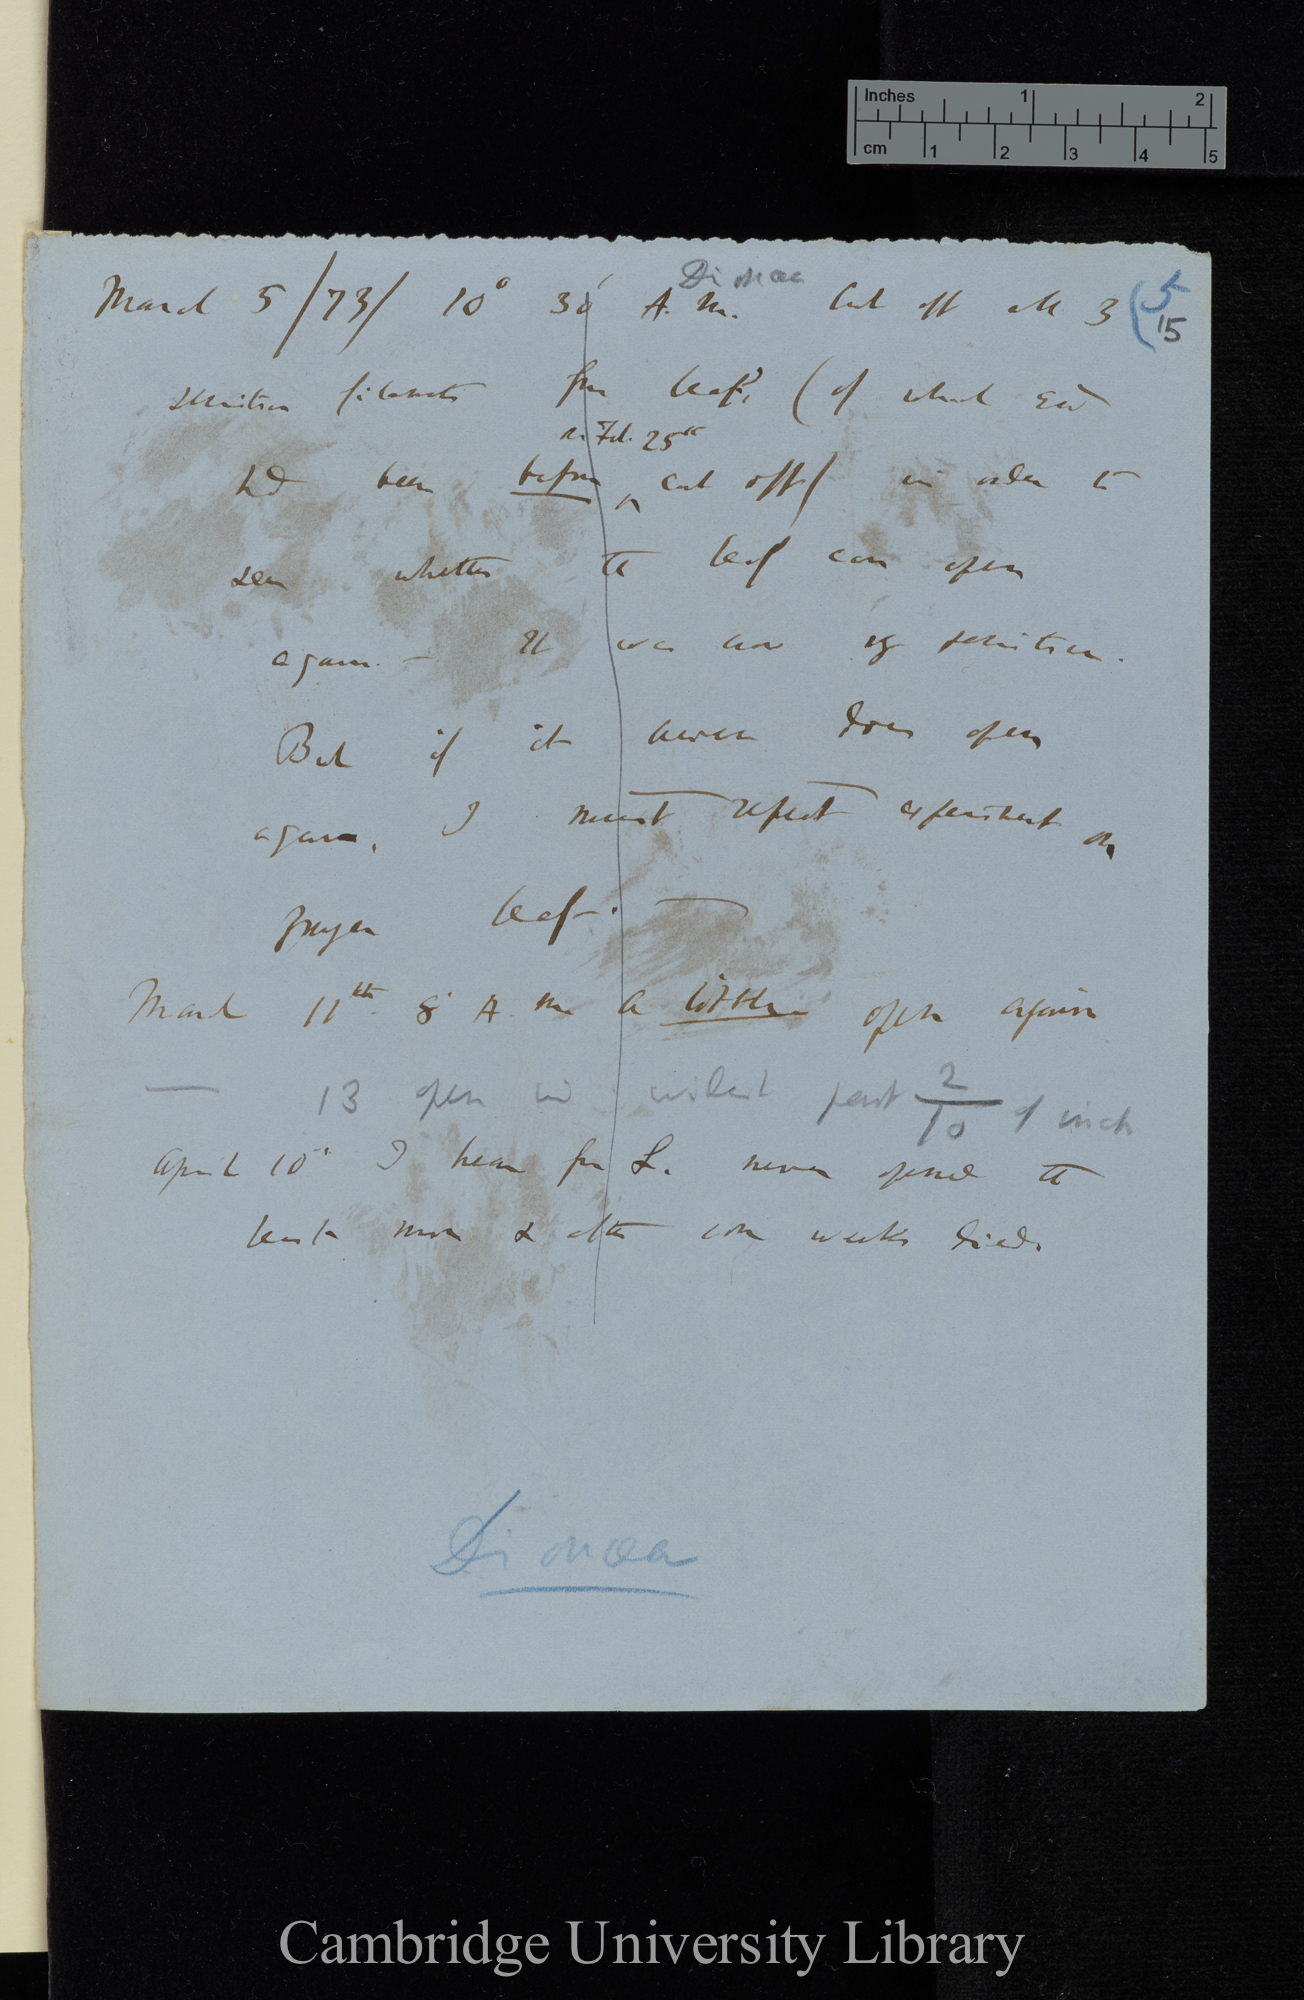 Inches 1 2
cm 1 2 3 4 5
Dionaea
March 5/73/ 10° 30' A.M. Cut off all 3 (5
15
sensitive filaments from leaf, (of which end
on Feb. 25th
had been before ^ cut off) in order to
see whether the leaf can open
again. — It was now sensitive.
But if it never does open
again, I must repeat experiment on
younger leaf. —
March 11th 8° A.M a little open again
— 13 open in widest part 2/10 of inch
April 10" I hear from L. never opened the
least more & after some weeks died.
Dionaea
Cambridge University Library